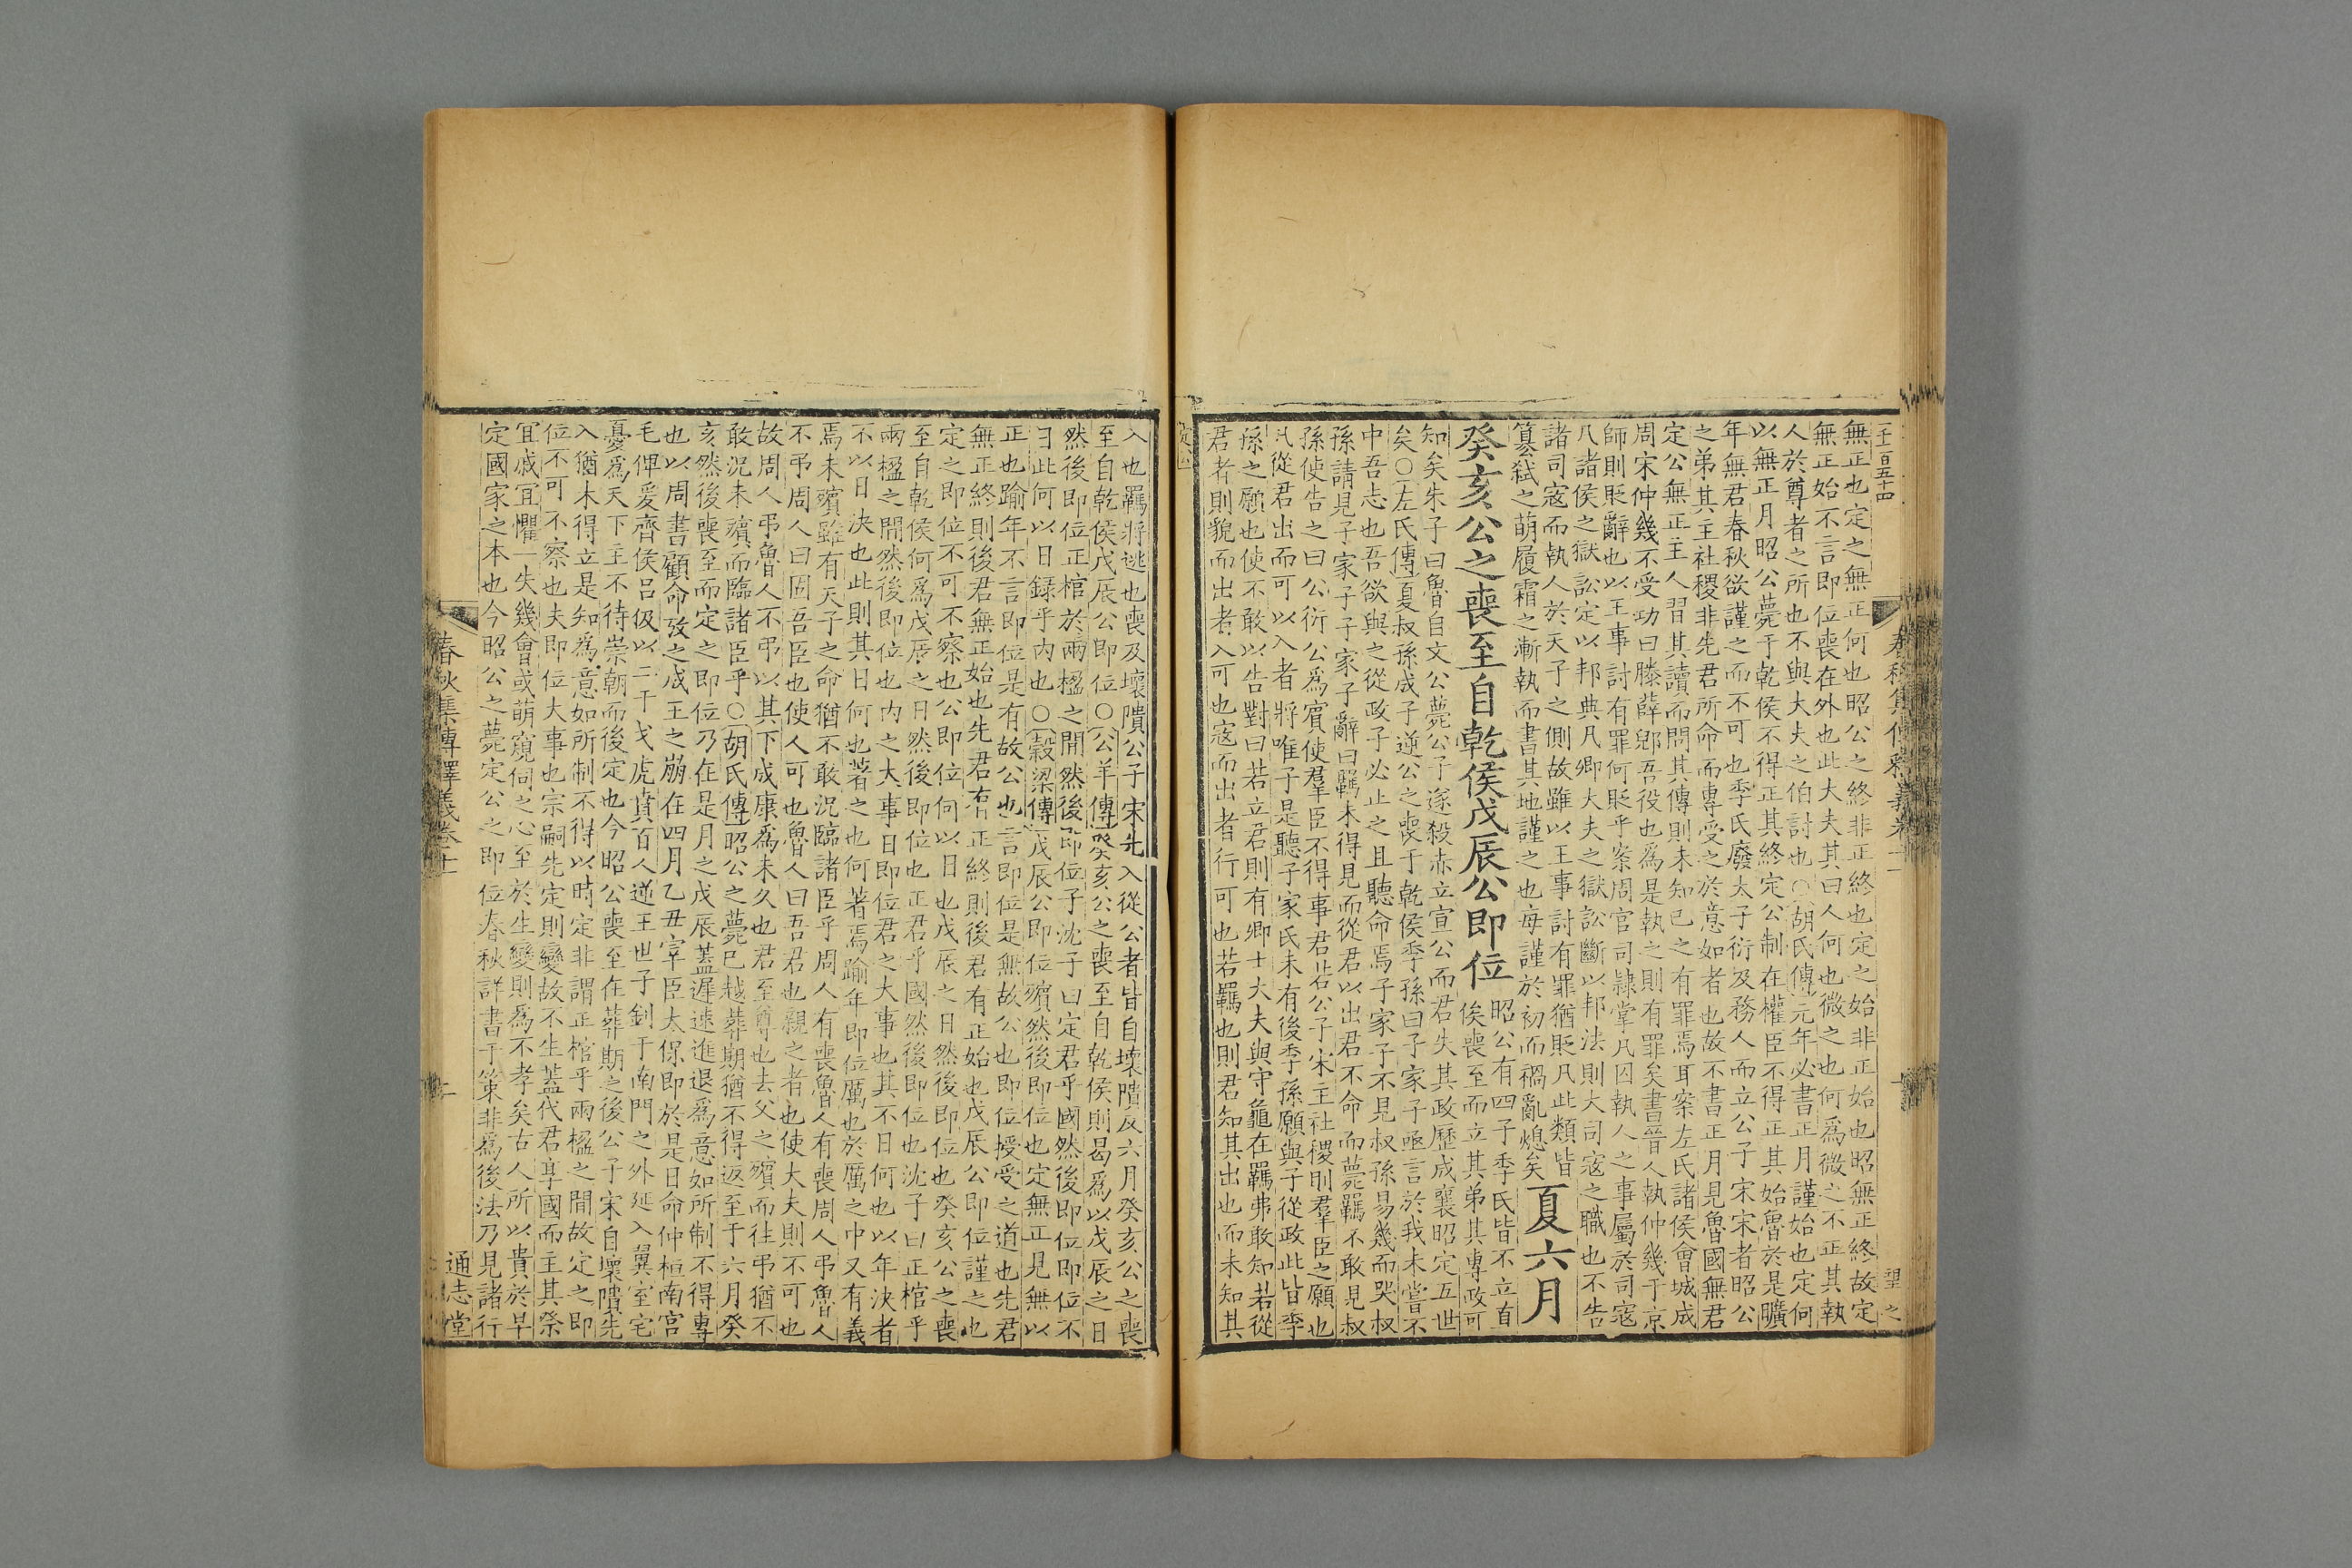 無正也定之無正何也昭公之終非正終也定之始非正始也昭無正終故定
無正始不言即位喪在外也此大夫其曰人何也微之也何爲微之不正其執
人於尊者之所也不與大夫之伯討也○胡氏傳元年必書正月謹始也定何
以無正月昭公薨于乾侯不得正其終定公制在權臣不得正其始魯於是曠
年無君春秋欲謹之而不可也季氏廢太子衍及務人而立公子宋宋者昭公
之弟其主社稷非先君所命而專受之於意如者也故不書正月見魯國無君
定公無正主人習其讀而問其傳則未知已之有罪焉耳案左氏諸侯會城成
周宋仲幾不受功曰滕薛郳吾役也爲是執之則有罪矣書晉人執仲幾于京
師則貶辭也以王事討有罪何貶乎案周官司隷掌凡囚執人之事屬於司寇
凡諸侯之獄訟定以邦典凡卿大夫之獄訟斷以邦法則大司寇之職也不告
諸司寇而執人於天子之側故雖以王事討有罪猶貶凡此類皆
篡弑之萌履霜之漸執而書其地謹之也每謹於初而禍亂熄矣
夏六月
癸亥公之喪至自乾侯戊辰公即位
昭公有四子季氏皆不立直
俟喪至而立其弟其專政可
知矣朱子曰魯自文公薨公子遂殺赤立宣公而君失其政歷成襄昭定五世
矣○左氏傳夏叔孫成子逆公之喪于乾侯季孫曰子家子亟言於我未嘗不
中吾志也吾欲與之從政子必止之且聽命焉子家子不見叔孫易幾而哭叔
孫請見子家子子家子辭曰羈未得見而從君以出君不命而薨羈不敢見叔
孫使告之曰公衍公爲實使羣臣不得事君若公子宋主社稷則羣臣之願也
凡從君出而可以入者將唯子是聽子家氏未有後季孫願與子從政此皆季
孫之願也使不敢以告對曰若立君則有卿士大夫與守龜在羈弗敢知若從
君者則貌而出者入可也寇而出者行可也若羈也則君知其出也而未知其
入也羈將逃也喪及壞隤公子宋先入從公者皆自壞隤反六月癸亥公之喪
至自乾侯戊辰公即位○公羊傳癸亥公之喪至自乾侯則曷爲以戊辰之日
然後即位正棺於兩楹之閒然後即位子沈子曰定君乎國然後即位即位不
日此何以日録乎内也○穀梁傳戊辰公即位殯然後即位也定無正見無以
正也踰年不言即位是有故公也言即位是無故公也即位授受之道也先君
無正終則後君無正始也先君有正終則後君有正始也戊辰公即位謹之也
定之即位不可不察也公即位何以日也戊辰之日然後即位也癸亥公之喪
至自乾侯何爲戊辰之日然後即位也正君乎國然後即位也沈子曰正棺乎
兩楹之閒然後即位也内之大事日即位君之大事也其不日何也以年決者
不以日決也此則其日何也著之也何著焉踰年即位厲也於厲之中又有義
焉未殯雖有天子之命猶不敢況臨諸臣乎周人有喪魯人有喪周人弔魯人
不弔周人曰固吾臣也使人可也魯人曰吾君也親之者也使大夫則不可也
故周人弔魯人不弔以其下成康爲未久也君至尊也去父之殯而往弔猶不
敢況未殯而臨諸臣乎○胡氏傳昭公之薨已越葬期猶不得返至于六月癸
亥然後喪至而定之即位乃在是月之戊辰蓋遲速進退爲意如所制不得專
也以周書顧命攷之成王之崩在四月乙丑宰臣太保即於是日命仲桓南宮
毛俾爰齊侯呂伋以二干戈虎賁百人逆王世子釗于南門之外延入翼室宅
憂爲天下主不待崇朝而後定也今昭公喪至在葬期之後公子宋自壞隤先
入猶未得立是知爲意如所制不得以時定非謂正棺乎兩楹之閒故定之即
位不可不察也夫即位大事也宗嗣先定則變故不生蓋代君享國而主其祭
宜戚宜懼一失幾會或萌窺伺之心至於生變則爲不孝矣古人所以貴於早
定國家之本也今昭公之薨定公之即位春秋詳書于策非爲後法乃見諸行
春秋集傳釋義卷十一
二
通志堂